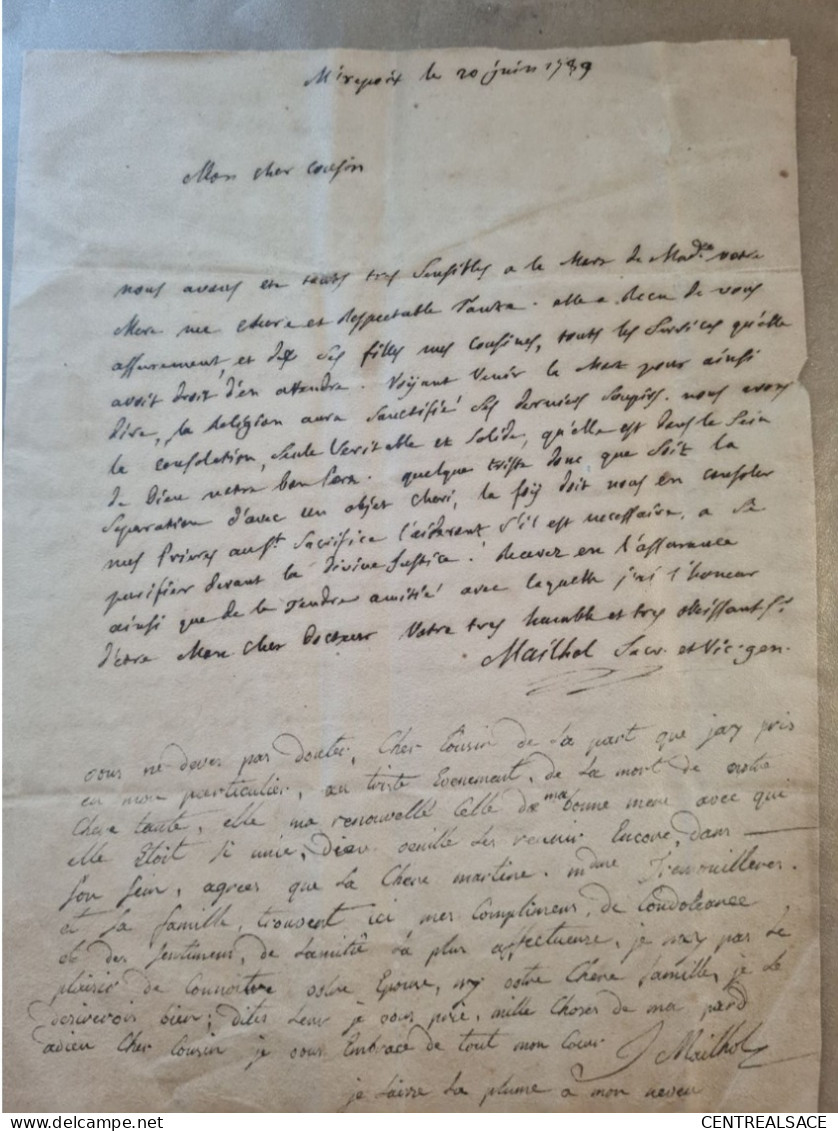 Mirepoix le 20 juin 1789
Mon cher cousin
nous avons eté touts tres sensibles a la Mort de Mad.e votre
Mere ma chere et respectable Tante. elle a Recu de vous
assurement, et de ses filles mes cousines, touts les services qu'elle
avoit droit d'en attendre. Voyant venir la Mort pour ainsi
dire, la Religion aura sanctifié ses derniers soupirs. nous avons
la consolation, seule Veritable et solide, qu'elle est dans le sein
de Dieu notre bon Pere. quelque triste donc que soit la
separation d'avec un objet cheri, la foy doit nous en consoler
nos Prieres au St Sacrifice l'aideront s'il est necessaire, a se
purifier devant la divine Justice. Recevez en l'assurance
ainsi que de la tendre amitié avec laquelle j'ai l'honeur
d'etre Mon Cher Docteur Votre tres humble et tres obeissant Sr
Mailhol Sacr. et Vic. gen.
vous ne deves pas douter, Cher Cousin de La part que jay pris
en mon particulier, au triste Evenement, de La mort de votre
Chere tante, elle ma renouvellé Celle de ma bonne mere avec qui
elle Etoit si unie, Dieu veuille Les reunir Encore, dans
son sein, agrees que La Chere martine. mdme
et sa famille, trouvent ici mes Complimens, de Condoleance
et des sentimens, de Lamitié La plus affectueuse, je nay pas Le
plaisir de Connoitre votre Epouse, ny votre Chere famille, je Le
desirerois bien; dites Leur je vous prie, mille Choses de ma part
adieu Cher Cousin je vous Embrace de tout mon Cœur
Mailhol
je Laisse La plume a mon neveu
CENTREALSACE